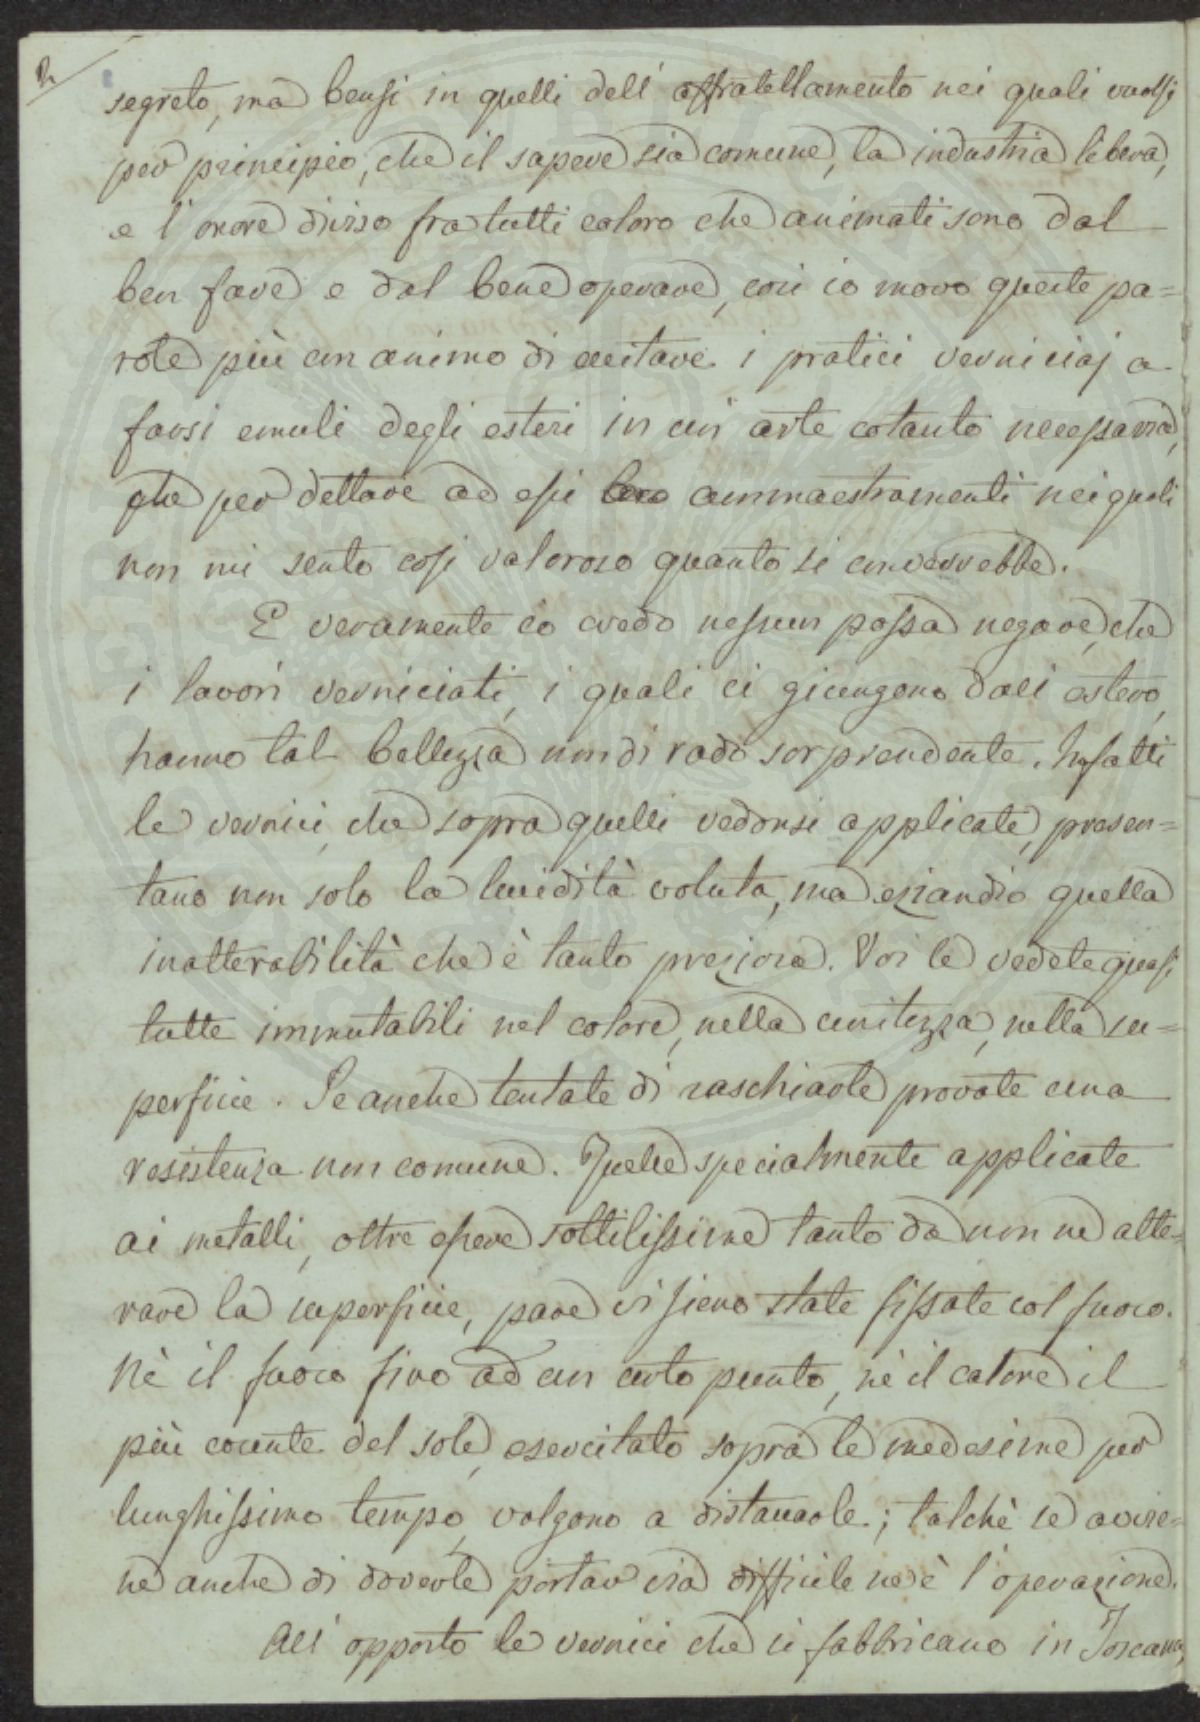 2
segreto, ma bensì in quelli dell' affratellamento nei quali vuolsi
per principio, che il sapere sia comune, la industria libera,
e l' onore diviso fra tutti coloro che animati sono dal
ben fare e dal bene operare, così io movo queste pa=
role più con animo di eccitare i pratici verniciaj a
farsi emuli degli esteri in un' arte cotanto necessaria,
che per dettare ad essi loro ammaestramenti nei quali
non mi sento così valoroso quanto si converrebbe.
E veramente io credo nessun possa negare, che
i lavori verniciati, i quali ci giungono dall' estero,
hanno tal bellezza non di rado sorprendente. Infatti
le vernici, che sopra quelli vedonsi applicate, presen=
tano non solo la lucidità voluta, ma eziandio quella
inatterabilità che è tanto preziosa. Voi le vedete quasi
tutte immutabili nel colore, nella unitezza, nella su=
perficie. Se anche tentate di raschiarle provate una
resistenza non comune. Quelle specialmente applicate
ai metalli, oltre essere sottilissime tanto da non ne alte=
rare la superficie, pare vi sieno state fissate col fuoco.
Nè il fuoco fino ad un certo punto, nè il calore il
più cocente del sole, esercitato sopra le medesime per
lunghissimo tempo, valgono a distaccarle; talchè se avvie=
ne anche di doverle portar via difficile ne è l' operazione.
All' opposto le vernici che si fabbricano in Toscana,